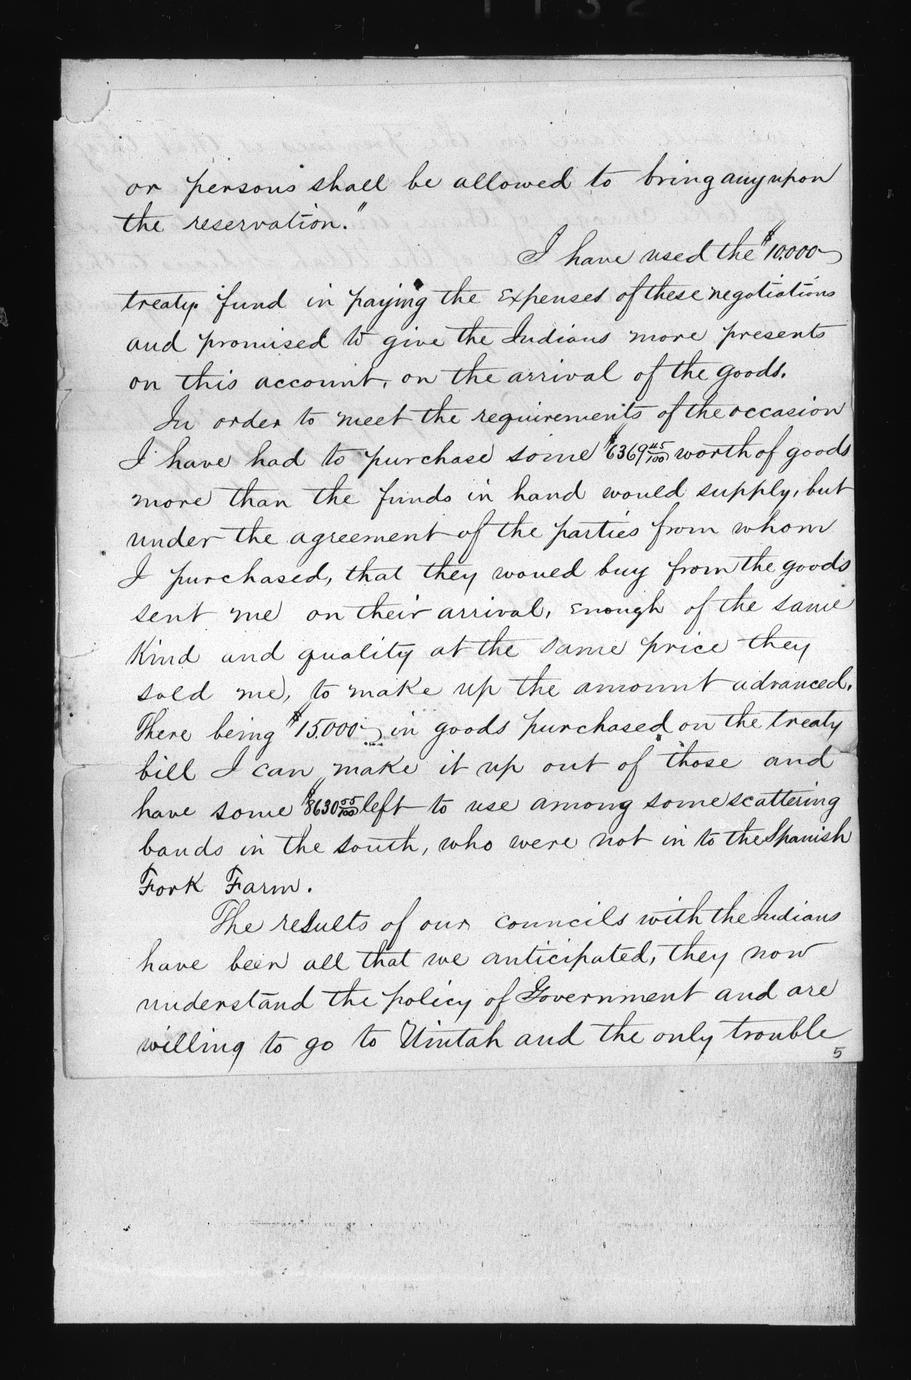 or persons shall be allowed to bring any upon
the reservation."
I have used the $10.000
treaty fund in paying the expenses of these negotiations
and promised to give the Indians more presents
on this account, on the arrival of the goods.
In order to meet the requirements of the occasion
I have had to purchase some $6369 45/100 worth of goods
more than the funds in hand would supply, but
under the agreement of the parties from whom
I purchased, that they would buy from the goods
sent me on their arrival, enough of the same
kind and quality at the same price they
sold me, to make up the amount advanced.
There being $15.000 in goods purchased on the treaty
bill I can make it up out of those and
have some $8630 55/100 left to use among some scattering
bands in the south, who were not in to the Spanish
Fork Farm.
The results of our councils with the Indians
have been all that we anticipated, they now
understand the policy of Government and are
willing to go to Uintah and the only trouble
5